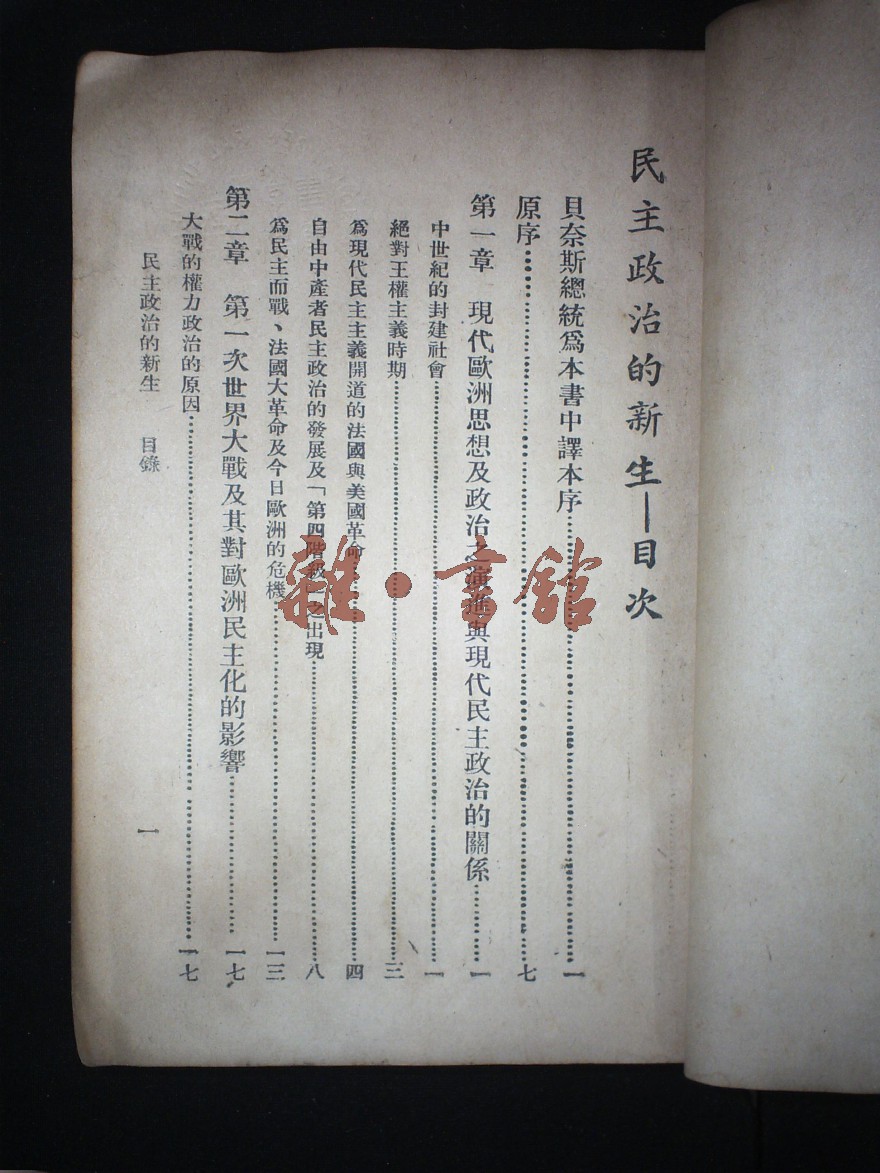 民主政治的新生—目次
貝奈斯總統爲本書中譯本序……一
原序……七
第一章 現代歐洲思想及政治之演進與現代民主政治的關係……一
中世紀的封建社會……一
絕對王權主義時期……三
爲現代民主主義開道的法國與美國革命……四
自由中產者民主政治的發展及「第四階級」之出現……八
爲民主而戰、法國大革命及今日歐洲的危機……一三
第二章 第一次世界大戰及其對歐洲民主化的影響……一七
大戰的權力政治的原因……一七
民主政治的新生 目錄
一
雜·書館